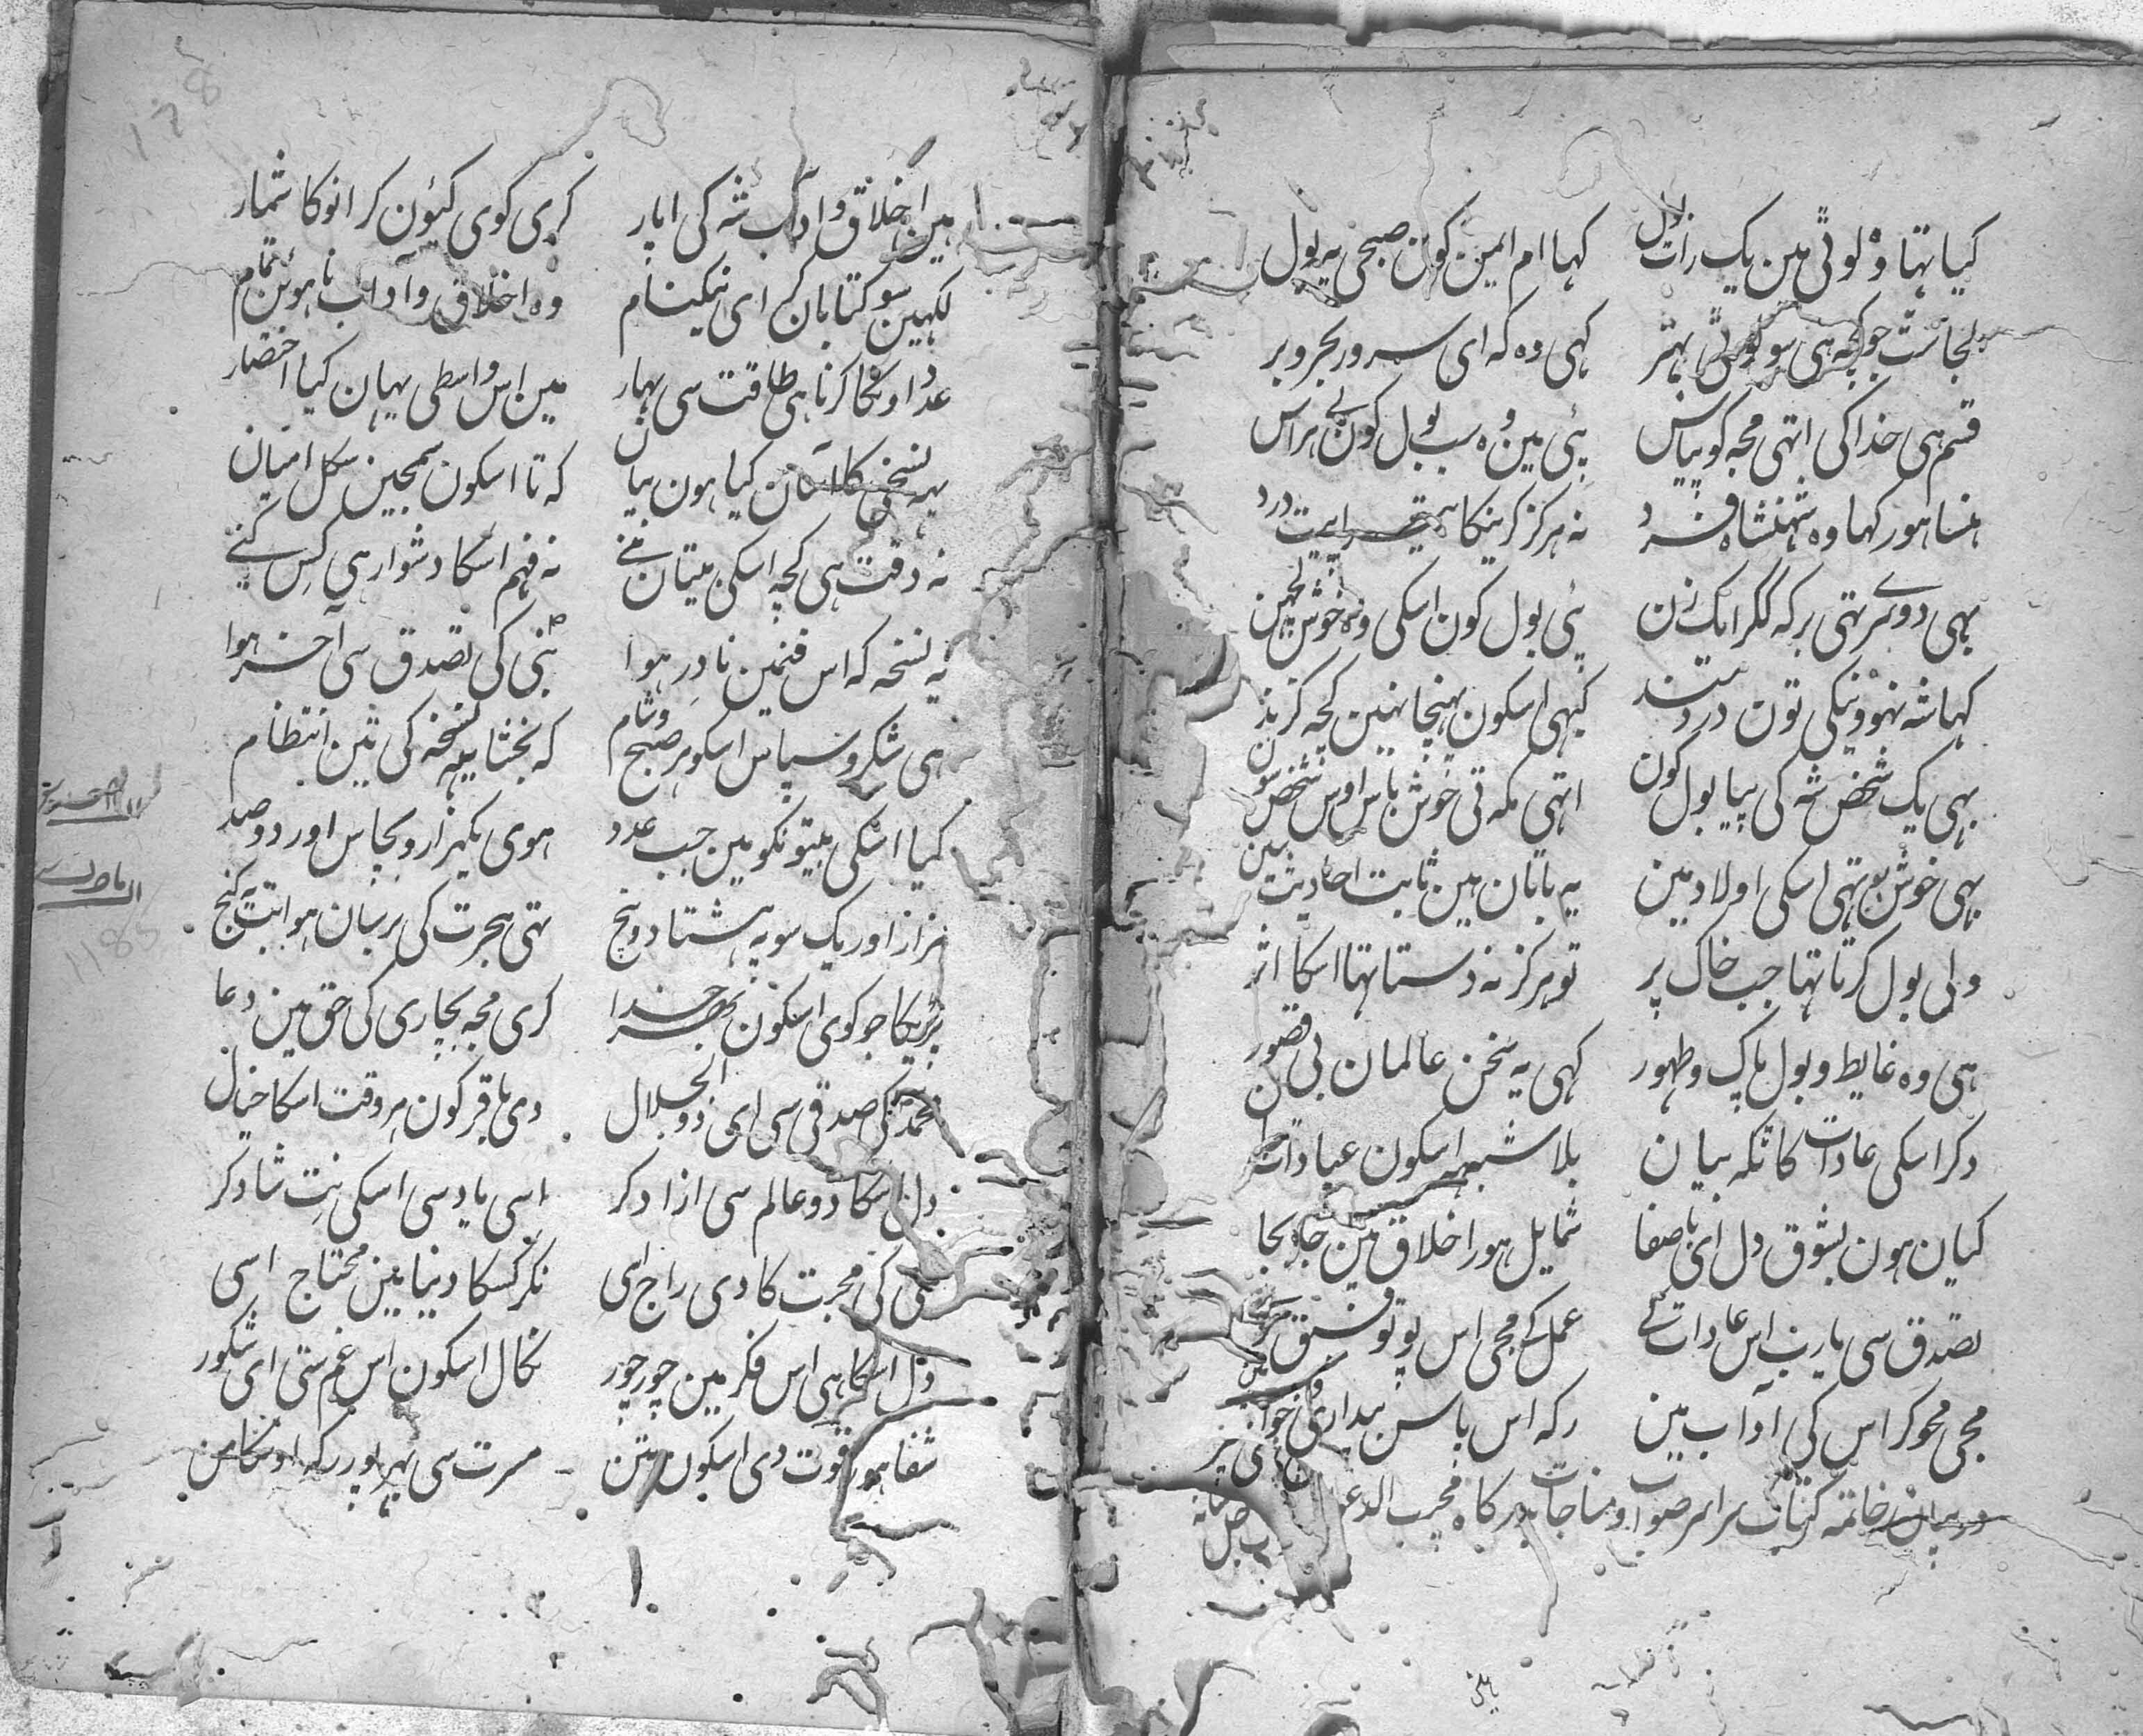 کیا تہا وہ لوٹی مین یک رات بول کہا ام ایمن کون صبحی یہ بول
لجا سٹ جو کچہ ہی سو لوٹی بہتر کہی وہ کہ ای سرور بحر و بر
قسم ہی خدا کی اتہی مجہ کو پیاس پئی مین وہ سب بول کون بی ہراس
ہنسا ہور کہا وہ شہنشاہ فرد نہ ہرکز کرینکا درد
بہی دوسر تہی برکہ کر ایک زن پئی بول کون اسکی وہ خوش لچہن
کہا شہ نہووینکی تون دردمند کبہی اسکون پہنچا نہین کچہ کزند
بہی یک شخص شہ کی پیا بول کون اتہی مکہ تی خوش باس اوس شخص سون
بہی خوش بو تہی اسکی اولاد مین یہ باتان ہین ثابت احادیث مین
ولی بول کرتا تہا جب خاک پر تو ہرکز نہ دستا تہا اسکا اثر
ہی وہ غایط و بول پاک و طہور کہی یہ سخن عالمان بی قصور
ذکر اسکی عادات کا نکہ بیان بلا شبہ اسکون عبادات
کیان ہون بشوق دل ای با صفا شمایل ہور اخلاق مین جا بجا
تصدق سی یارب اس عادات کے عمل کے مجی اس پو توفیق
مجی محو کر اس کی آداب مین رکہ اس پاس بیداری و خواب مین
در بیان خاتمہ کتاب سراسر صواب و مناجات بدرکاہ مجیب
ہین اخلاق و آداب شہ کی اپار کری کوی کیون کر انو کا شمار
لکہین سو کتابان کر ای نیکنام وہ اخلاق و آداب نا ہوئن تمام
عدد اونکا کرنا ہی طاقت سی بہار مین اس واسطی یہان کیا اختصار
یہہ نسخی کا آسان کیا ہون بیان کہ تا اسکون سمجین سکل امتیان
نہ دقت ہی کچہ اسکی بیتان منے نہ فہم اسکا دشوار ہی کس کنے
یہ نسخہ کہ اس فنمین نادر ہوا نبی کی تصدق سی آخر ہوا
ہی شکر و سپاس اسکو ہر صبح و شام کہ بخشا یہہ نسخہ کی تین انتظام
کیا اسکی بیتونکو مین جب عدد ہوی یکہزار و پچاس اور دو صد
ہزار اور یک سو پہ ہشتاد و پنج تہی ہجرت کی برسان ہوا تب یہ کنج
پڑیکا جو کوی اسکون بہر خدا کری مجہ بچاری کی حق مین دعا
محمد کی صدقی سی ای ذوالجلال دی باقر کون ہر وقت اسکا خیال
دل اسکا دو عالم سی ازاد کر اسی یاد سی اسکی نت شاد کر
کی محبت کا دی راج اسی نکر کسکا دنیا مین محتاج اسی
دل اسکا ہی اس فکر مین چور چور نکال اسکون اس غم ستی ای شکور
شفا ہور قوت دی اسکون بتن مسرت سی بہرپور رکہ اوسکا من
128
1185